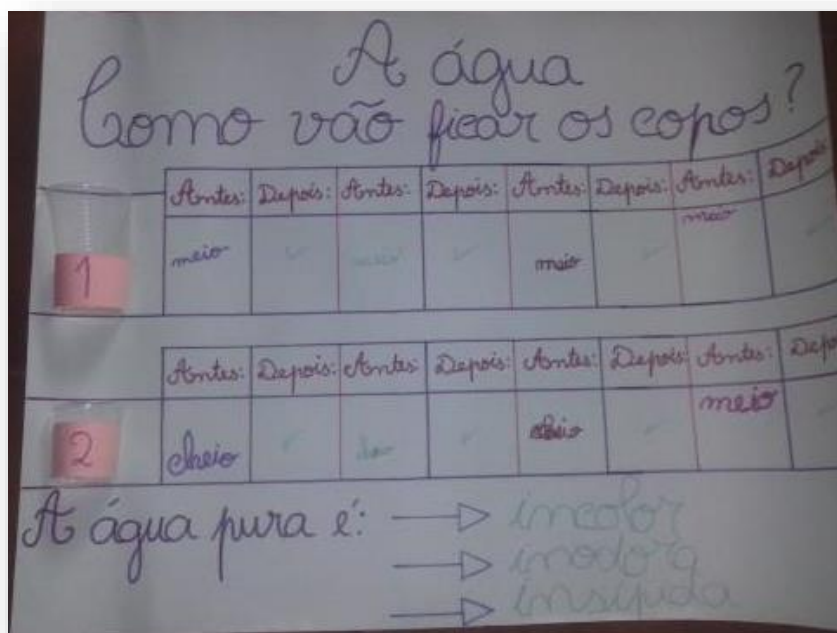 A água
Como vão ficar os copos?
Antes: Depois: Antes: Depois: Antes: Depois: Antes: Depois:
1 meio meio meio meio
Antes: Depois: Antes: Depois: Antes: Depois: Antes: Depo
2 cheio cheio meio
A água pura é: → incolor
→ inodora
→ insípida